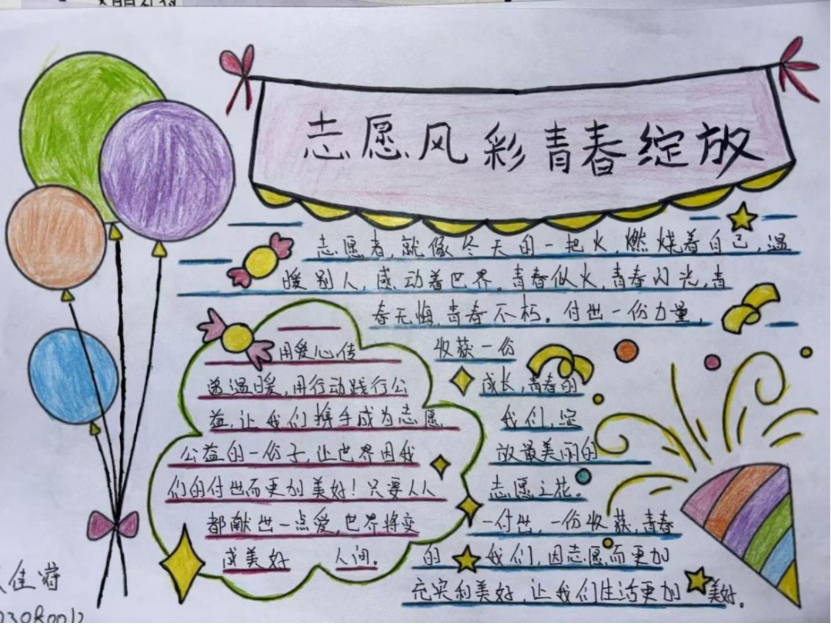 志愿风彩青春绽放
志愿者,就像冬天的一把火燃烧着自己,温
暖别人,感动着世界。青春似火,青春闪光,青
春无悔,青春不朽。付出一份力量,
收获一份
成长,青春的
我们,绽
放最美丽的
志愿之花。
一付出,一份收获,青春
的我们,因志愿而更加
充实和美好,让我们生活更加美好。
用爱心传
递温暖,用行动践行公
益,让我们携手成为志愿
公益的一份子,让世界因我
们的付出而更加美好!只要人人
都献出一点爱,世界将变
成美好人间。
佳